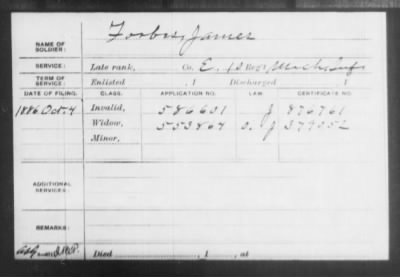 Forbes, James
NAME OF
SOLDIER:
SERVICE: Late rank, Co. E, Reg't Mich. Inf.
TERM OF
SERVICE: Enlisted , 1 Discharged , 1
DATE OF FILING. CLASS. APPLICATION NO. LAW. CERTIFICATE NO.
1886 Oct. 4 Invalid, 586631 J 876761
Widow, 553864 J 379052
Minor,
ADDITIONAL
SERVICES:
REMARKS:
Died , 1 , at